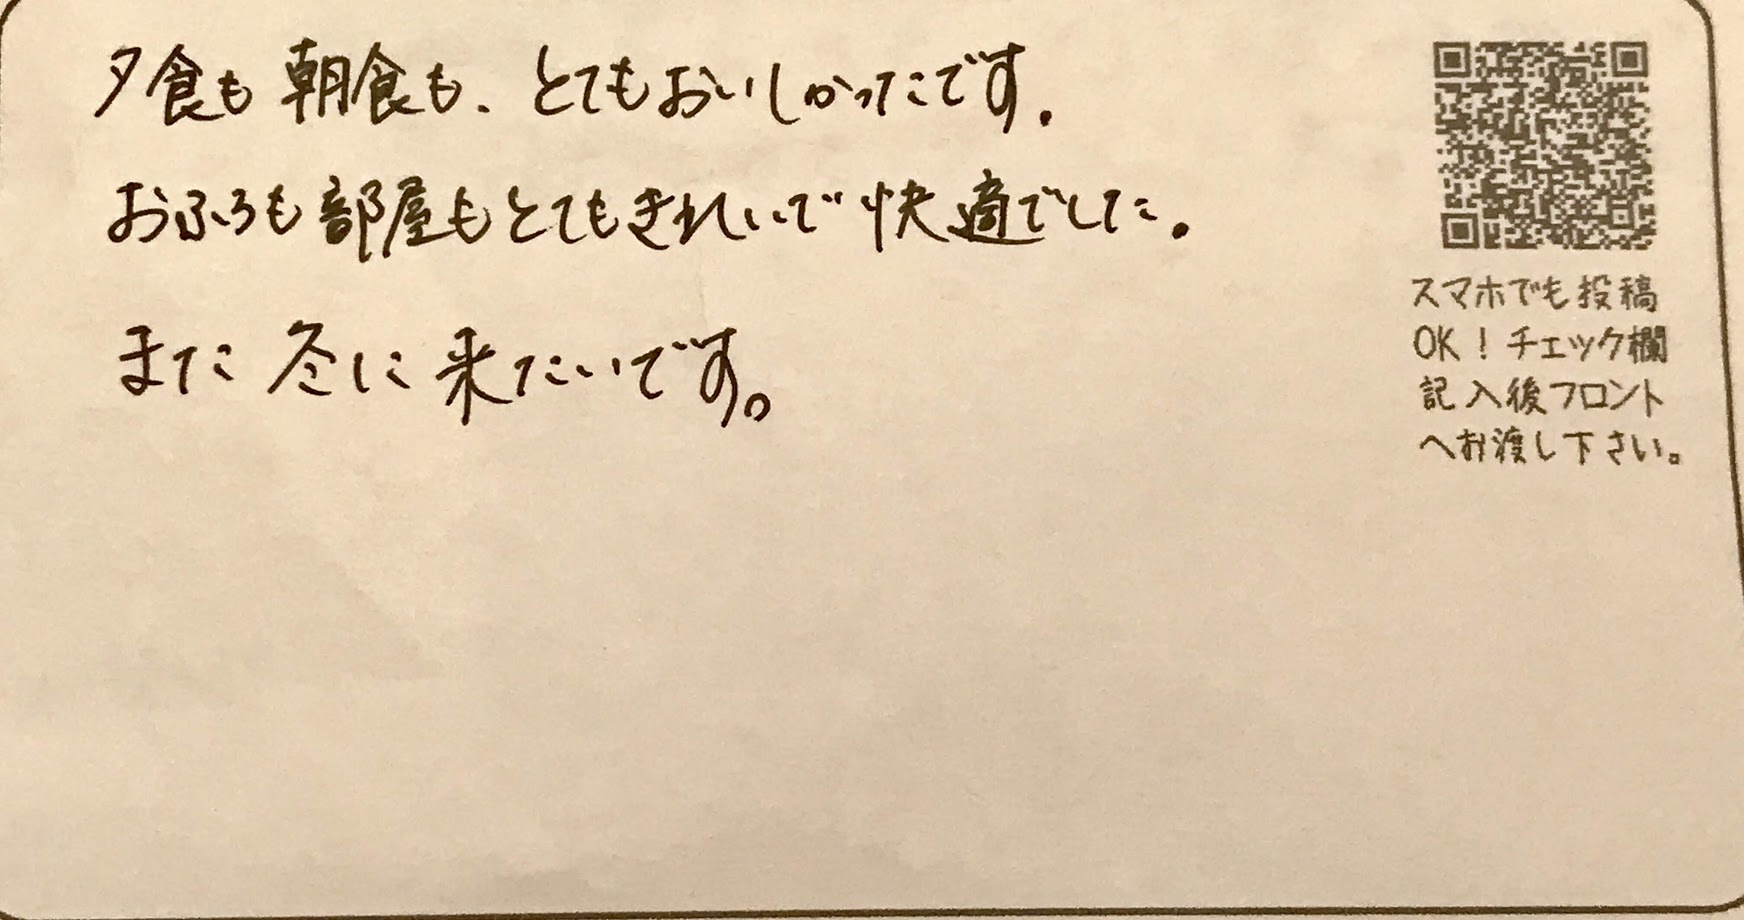 夕食も朝食も、とてもおいしかったです.
おふろも部屋もとてもきれいで快適でした。
また冬に来たいです。
スマホでも投稿
OK！チェック欄
記入後フロント
へお渡し下さい。